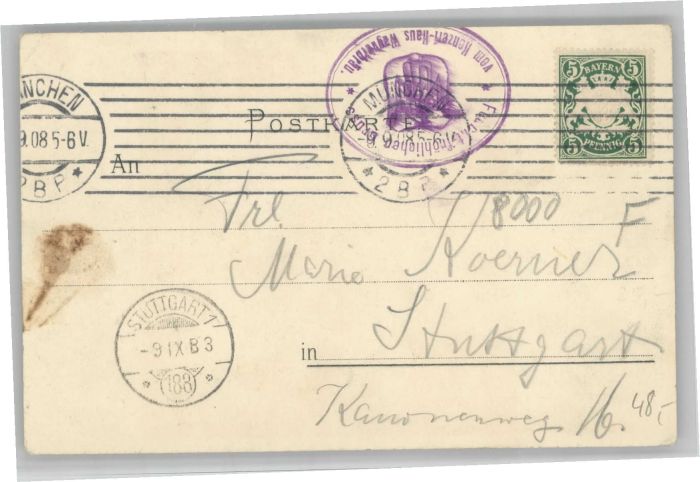 vom Konzert-Haus Wagnerbräu.
MÜNCHEN
9.9.08 5-6 V.
* 2 B P *
MÜNCHEN
9.9.08 5-6 V.
* 2 B P *
5 BAYERN 5
5 PFENNIG 5
POSTKARTE
An
Frl.
8000 F
Marie Koerner
STUTTGART 1
- 9 IX B 3
* (183) *
in Stuttgart
Kanonenweg 16.
48,-